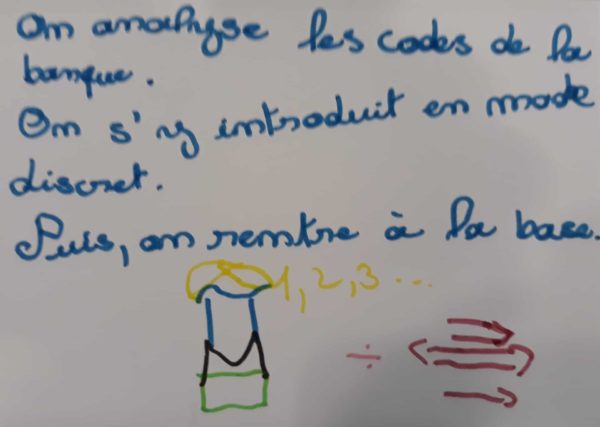 On analyse les codes de la
banque.
On s'y introduit en mode
discret.
Puis, on rentre à la base.
1, 2, 3 ...
÷